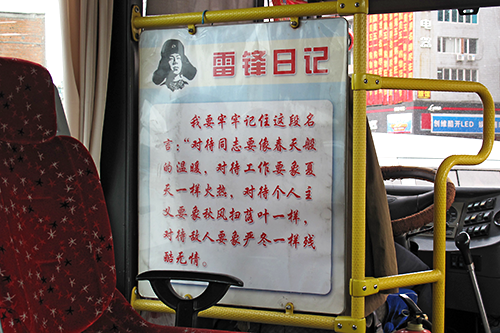 雷锋日记
我要牢牢记住这段名
言：“对待同志要像春天般
的温暖，对待工作要象夏
天一样火热，对待个人主
义要象秋风扫落叶一样，
对待敌人要象严冬一样残
酷无情。